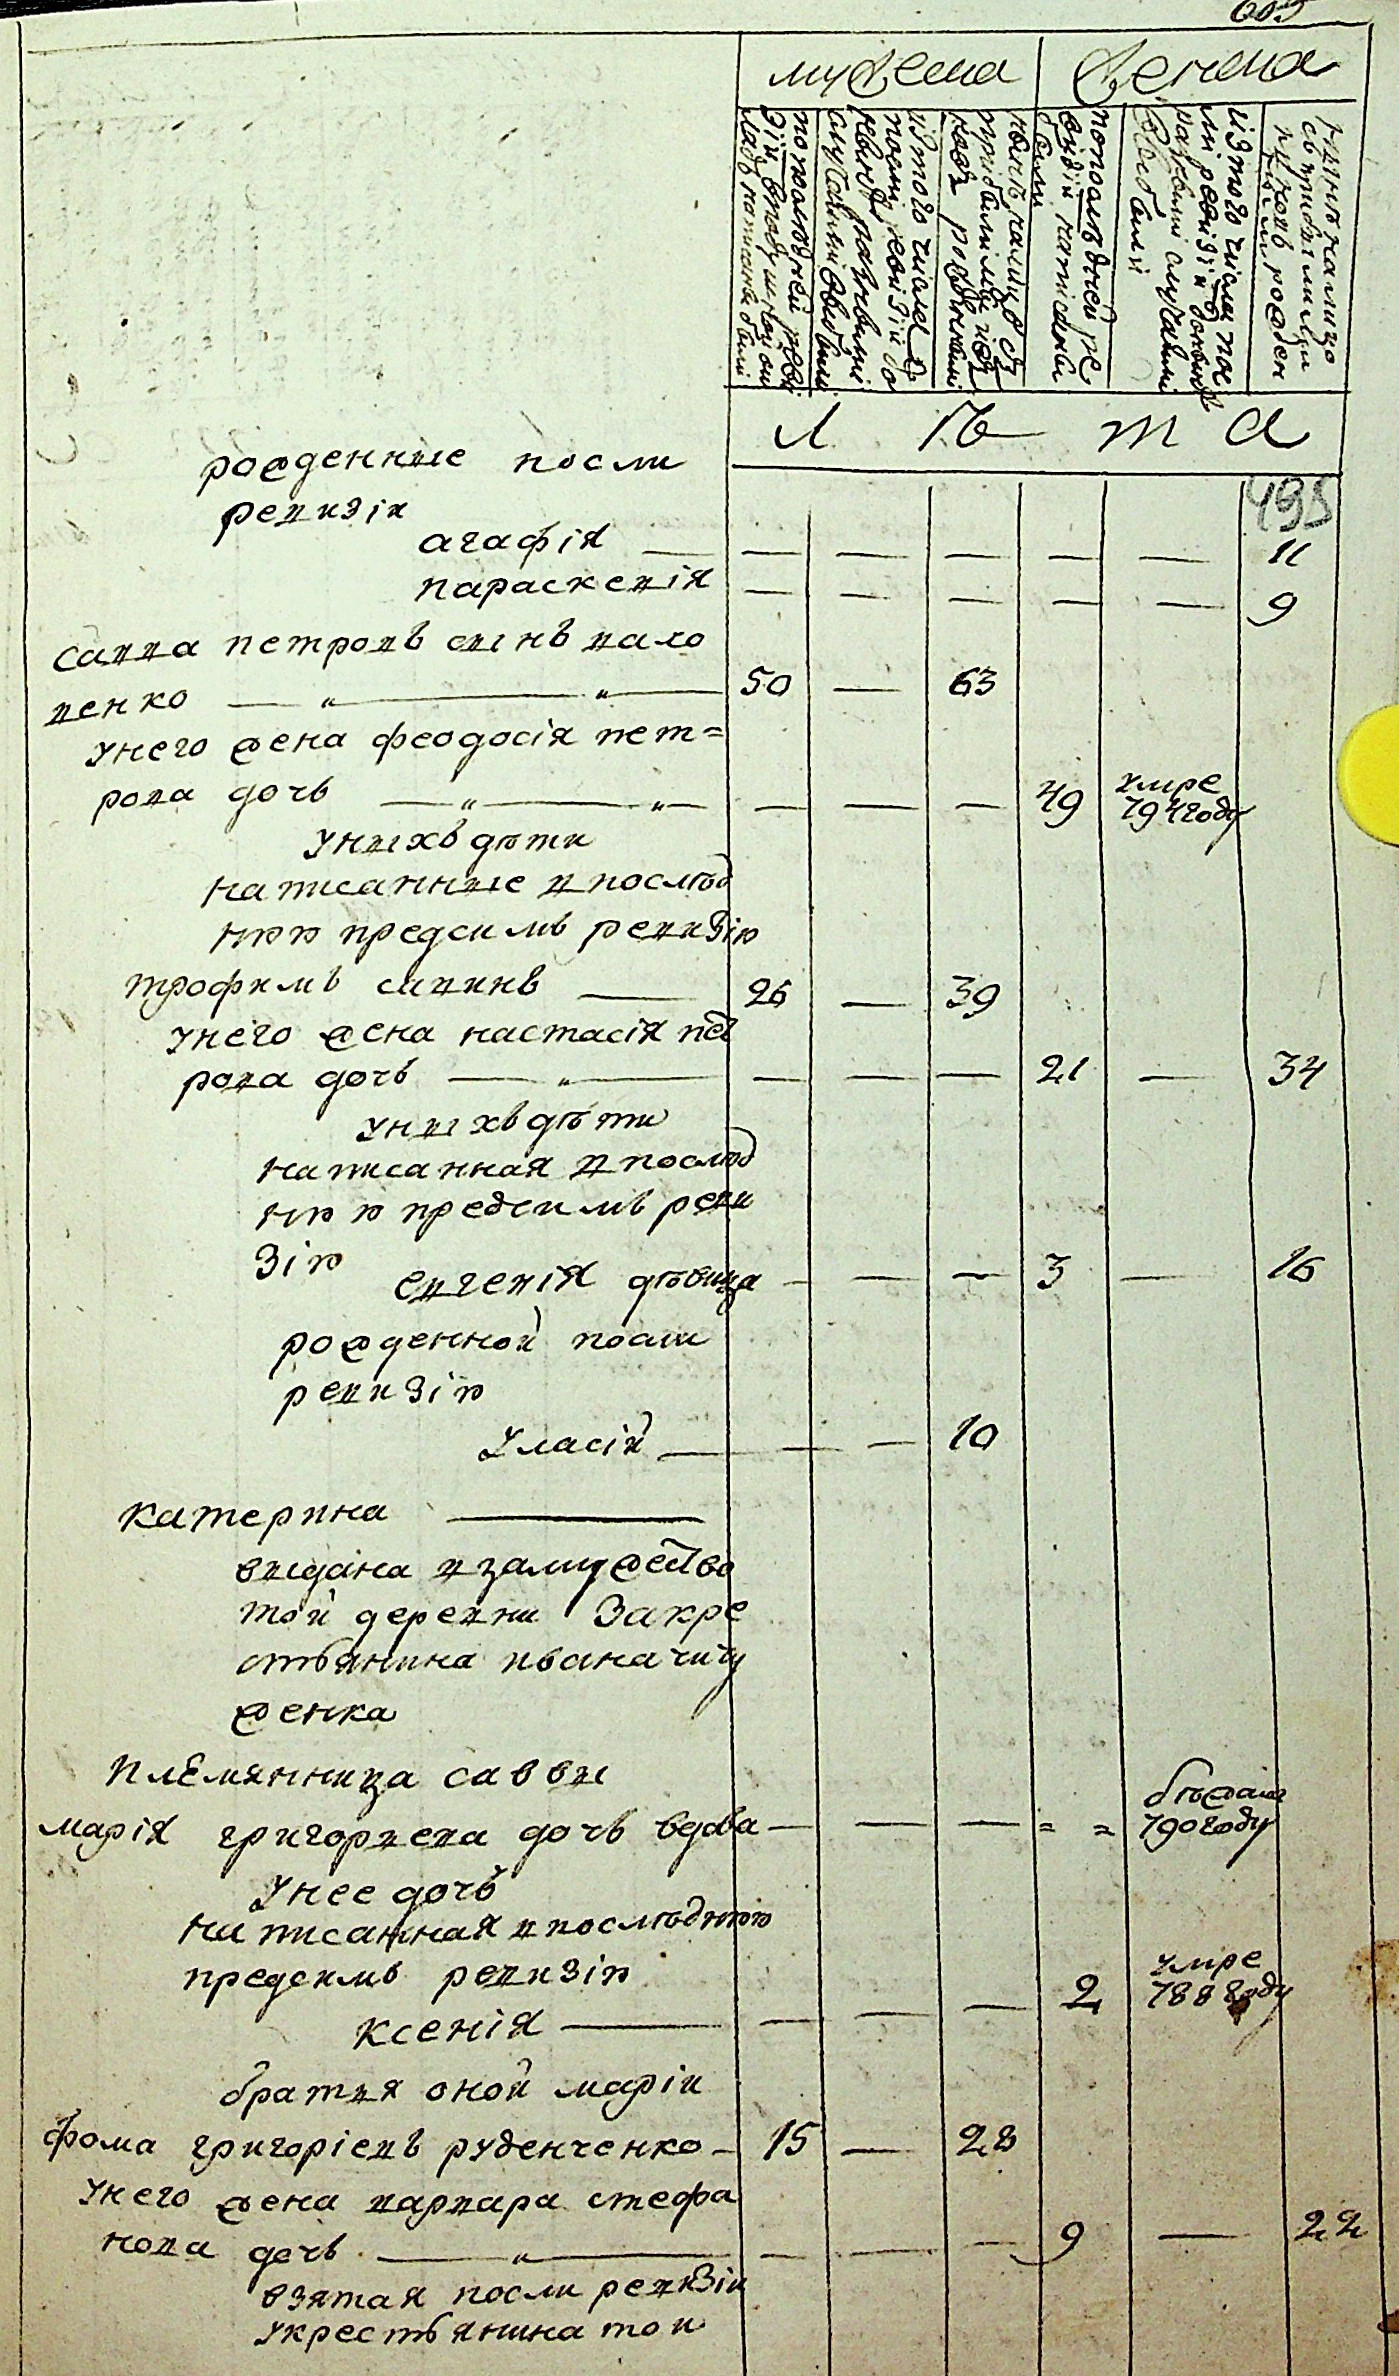 609
мужеска женска
по последней реви
зіи въ подушной ок
ладъ написаны были
изъ того числа
после ревизіи до
разными
случаями выбыли
нынѣ налицо съ
прибылыми и
рожденными
по последней ре
визіи написаны
были
изъ того числа пос
ли ревизіи
разными случаями
выбыли
нынѣ налицо
съ прибылыми
рожден
л ѣ т а
495
рожденные посли
ревизіи
агафія — — — — — — 11
параскевія — — — — — 9
савва петровъ сынъ вало
венко — „ — „ — 50 — 63
унего жена феодосія пет=
рова дочь — „ — „ — — — — 49 умре
794 году
унихъ дѣти
написанные в послѣд
нюю предсимъ ревизію
трофимъ савинъ — 26 — 39
унего жена настасія пет
рова дочь — „ — — — — 21 — 34
унихъ дѣти
написанная в послѣд
нюю предсимъ реви
зію
евгенія дѣвица — — — 3 — 16
рожденной посли
ревизію
Уласій — — — 10
катерина —
выдана взамужество
той деревни За кре
стьянина ивана чичу
женка
племянница саввы
марія григорьева дочь вдова — — — = = бѣжала
790 году
унее дочь
написанная в послѣднюю
предсимъ ревизію
ксенія — — — — 2 умре
788 году
братья оной маріи
фома григоріевъ руденченко — 15 — 28
унего жена варвара стефа
нова дочь — „ — — — — 9 — 22
взятая посли ревизіи
укрестьянина той